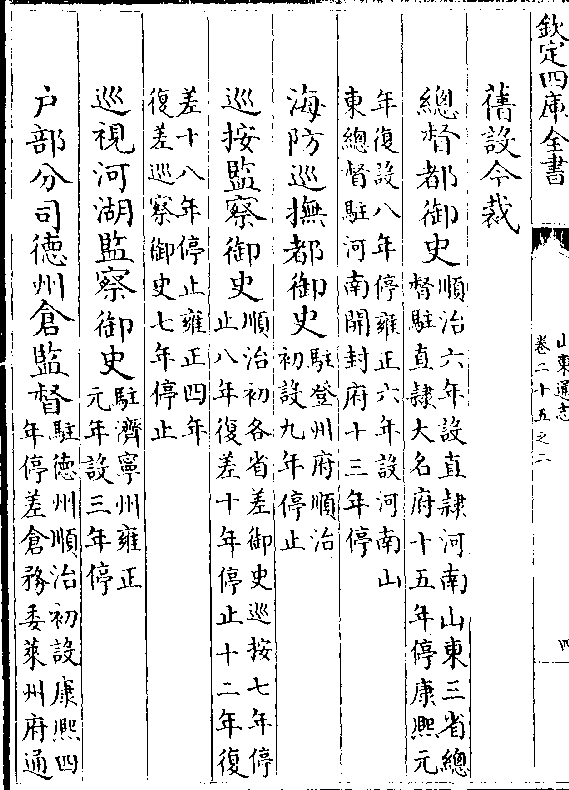 欽定四庫全書
山東通志
卷二十五之二
四
舊設今裁
總督都御史順治六年設直隸河南山東三省總
督駐直隸大名府十五年停康熙元
年復設八年停雍正六年設河南山
東總督駐河南開封府十三年停
海防巡撫都御史駐登州府順治
初設九年停止
巡按監察御史順治初各省差御史巡按七年停
止八年復差十年停止十二年復
差十八年停止雍正四年
復差巡察御史七年停止
巡視河湖監察御史駐濟寧州雍正
元年設三年停
户部分司德州倉監督駐德州順治初設康熙四
年停差倉務委萊州府通